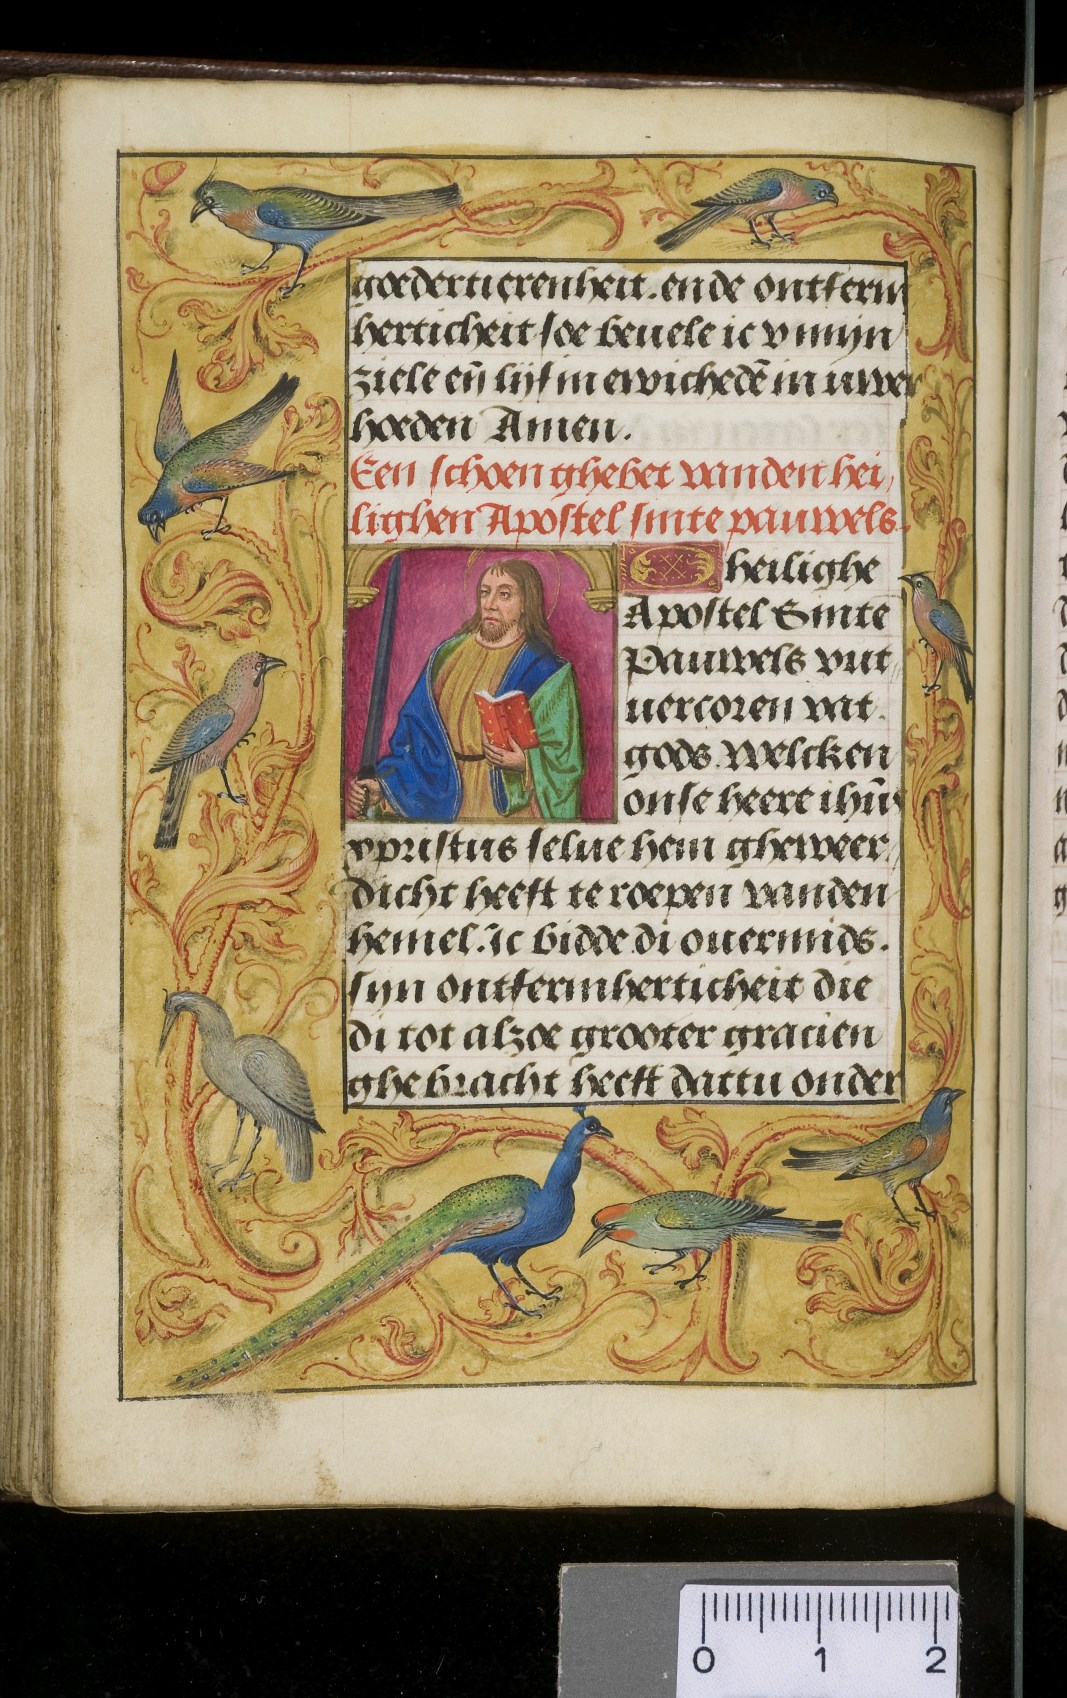 goedertierenheit. ende ontferm
herticheit soe beuele ic v mijn
ziele eñ lijf in ewichedē in uwer
hoeden Amen.
Een schoen ghebet vanden hei
lighen Apostel sinte pauwels.
O heilighe
Apostel Sinte
Pauwels vut
uercoren vat.
gods. welcken
onse heere ihūs
xpristus selue hem gheweer
dicht heeft te roepen vanden
hemel. ic bidde di ouermids.
sijn ontfermherticheit die
di tot alzoe grooter gracien
ghebracht heeft dattu onder
0 1 2